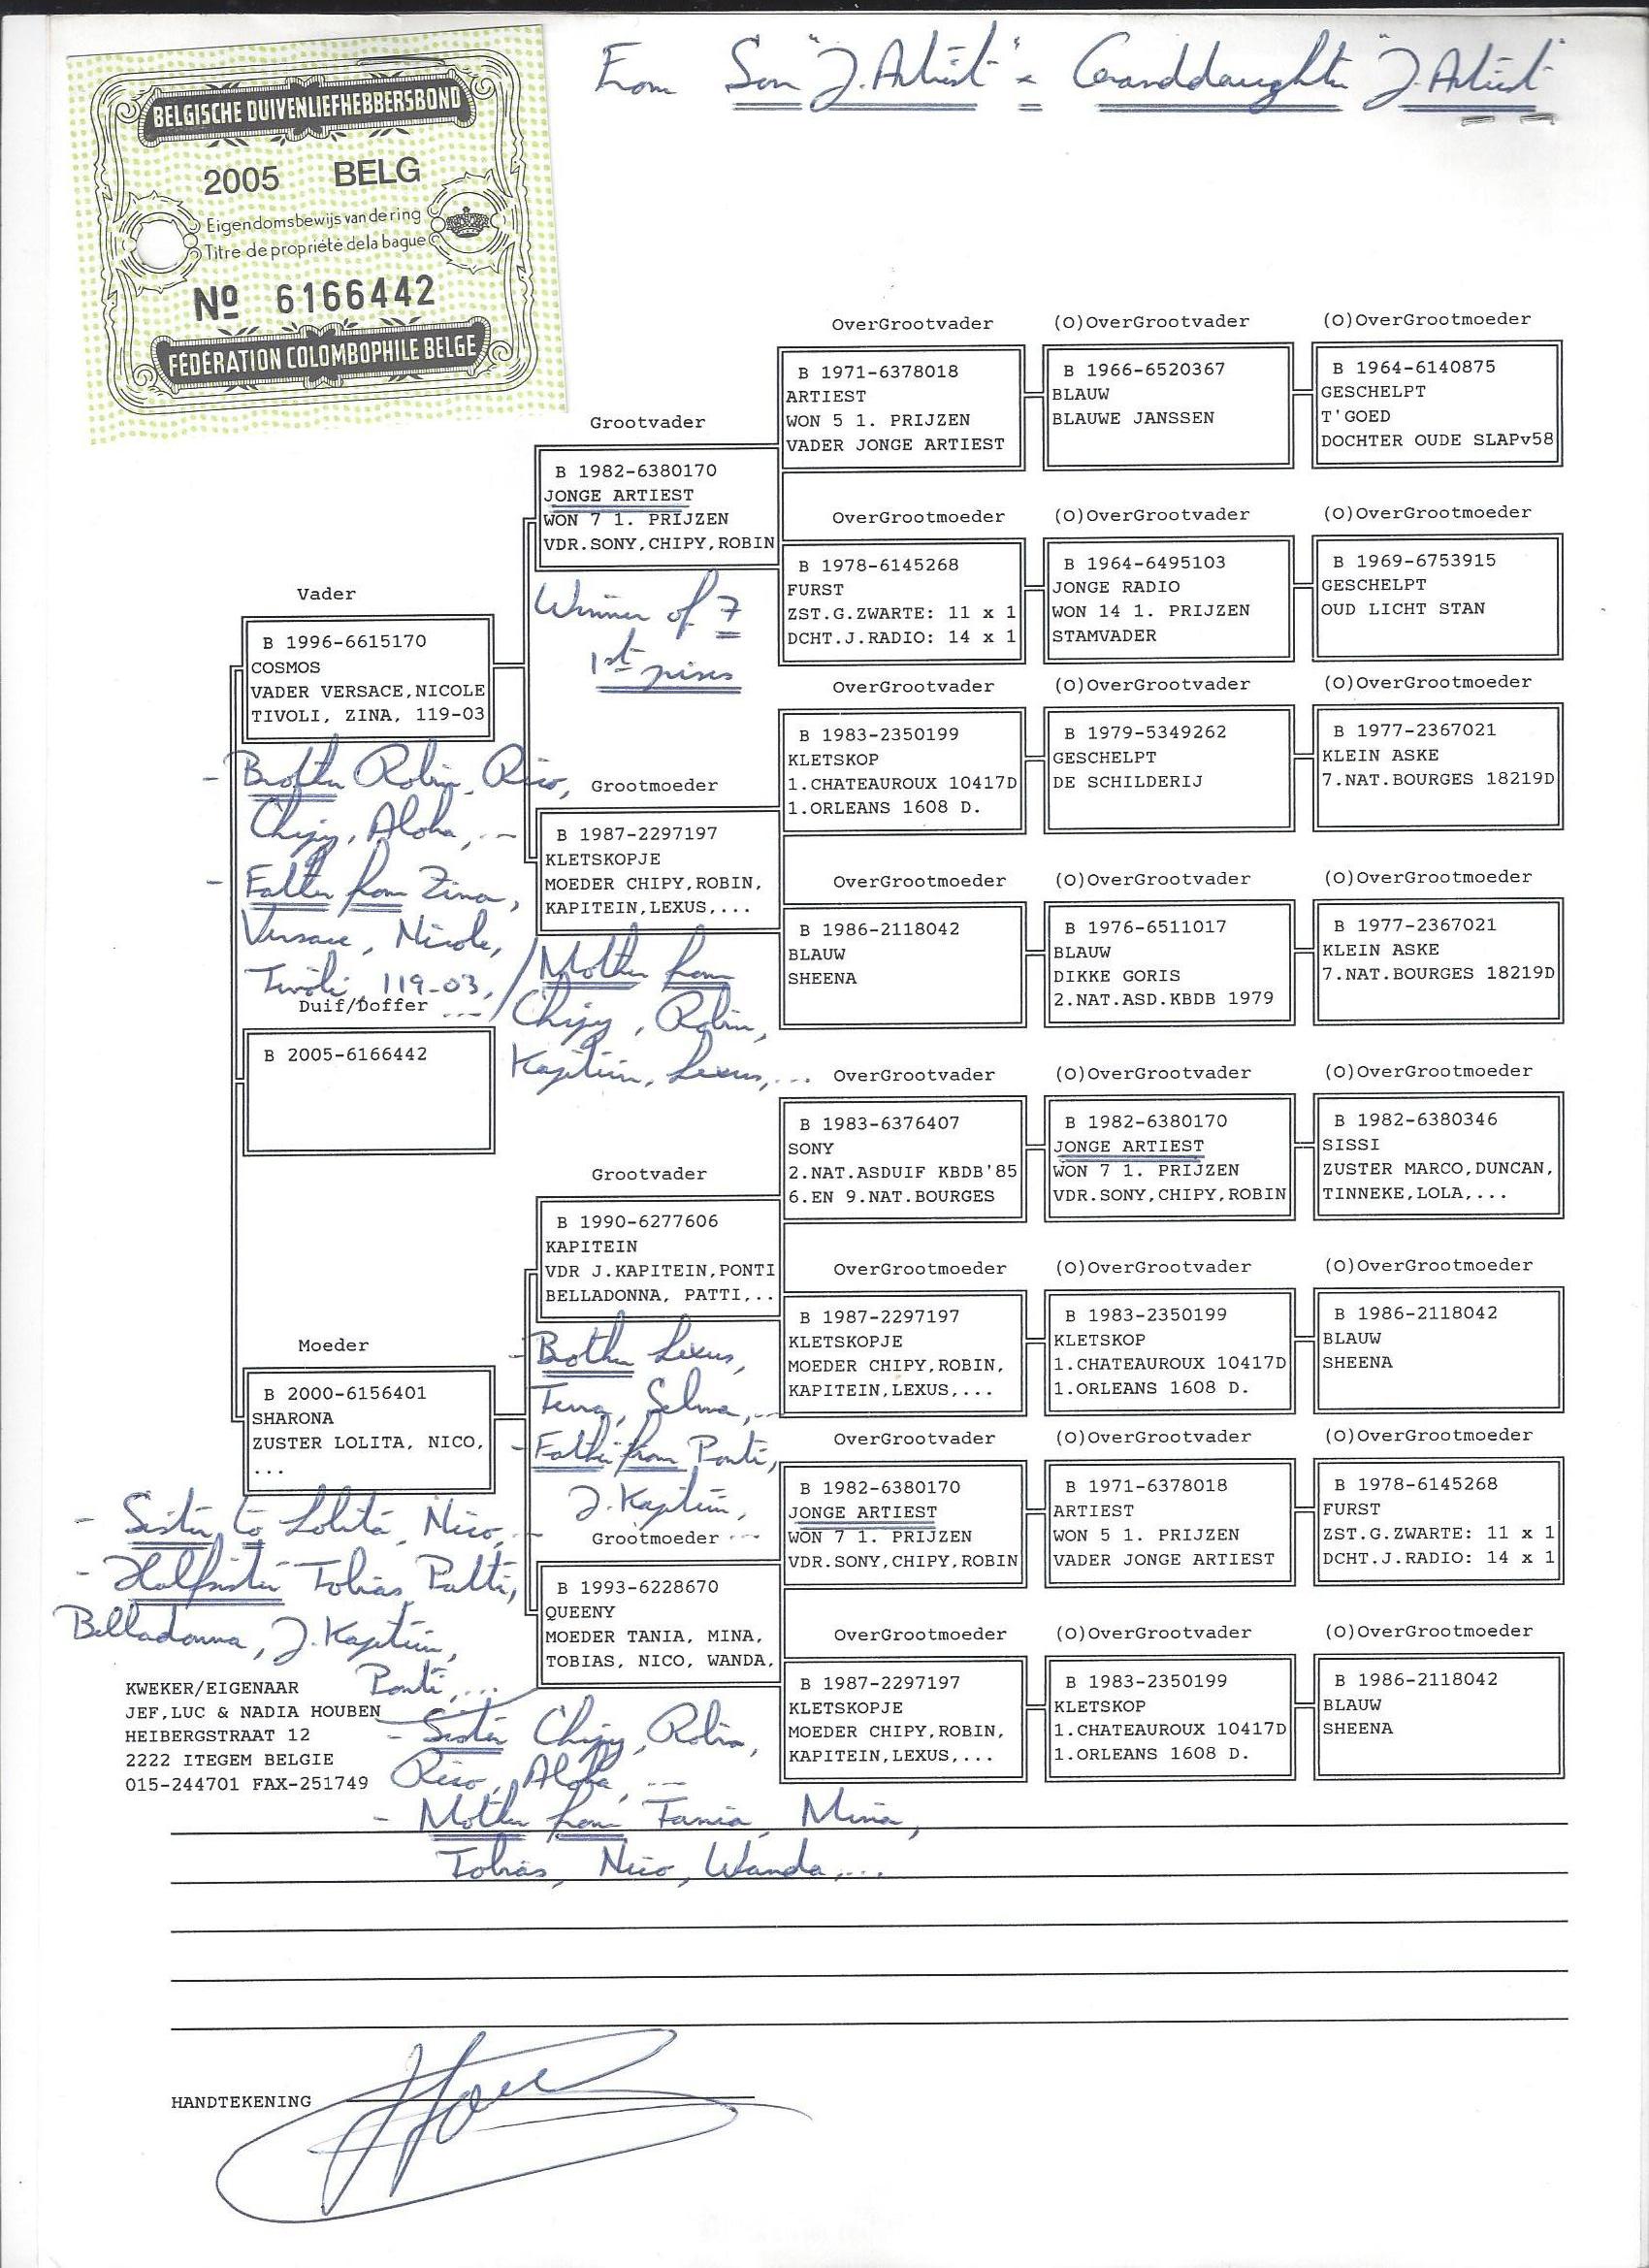 From Son "J. Artiest" x Granddaughter "J. Artiest"
BELGISCHE DUIVENLIEFHEBBERSBOND
2005 BELG
Eigendomsbewijs van de ring
Titre de propriété de la bague
No 6166442
FÉDÉRATION COLOMBOPHILE BELGE
OverGrootvader (O)OverGrootvader (O)OverGrootmoeder
B 1971-6378018
ARTIEST
WON 5 1. PRIJZEN
VADER JONGE ARTIEST
B 1966-6520367
BLAUW
BLAUWE JANSSEN
B 1964-6140875
GESCHELPT
T'GOED
DOCHTER OUDE SLAPv58
Grootvader
B 1982-6380170
JONGE ARTIEST
WON 7 1. PRIJZEN
VDR.SONY,CHIPY,ROBIN
Winner of 7
1st prises
OverGrootmoeder (O)OverGrootvader (O)OverGrootmoeder
B 1978-6145268
FURST
ZST.G.ZWARTE: 11 x 1
DCHT.J.RADIO: 14 x 1
B 1964-6495103
JONGE RADIO
WON 14 1. PRIJZEN
STAMVADER
B 1969-6753915
GESCHELPT
OUD LICHT STAN
Vader
B 1996-6615170
COSMOS
VADER VERSACE,NICOLE
TIVOLI, ZINA, 119-03
- Brother Robin, Rico,
Chipy, Aloha, ...
- Father from Zina,
Versace, Nicole,
Tivoli, 119-03,
...
OverGrootvader (O)OverGrootvader (O)OverGrootmoeder
B 1983-2350199
KLETSKOP
1.CHATEAUROUX 10417D
1.ORLEANS 1608 D.
B 1979-5349262
GESCHELPT
DE SCHILDERIJ
B 1977-2367021
KLEIN ASKE
7.NAT.BOURGES 18219D
Grootmoeder
B 1987-2297197
KLETSKOPJE
MOEDER CHIPY,ROBIN,
KAPITEIN,LEXUS,...
Mother from
Chipy, Robin,
Kapitein, Lexus,...
OverGrootmoeder (O)OverGrootvader (O)OverGrootmoeder
B 1986-2118042
BLAUW
SHEENA
B 1976-6511017
BLAUW
DIKKE GORIS
2.NAT.ASD.KBDB 1979
B 1977-2367021
KLEIN ASKE
7.NAT.BOURGES 18219D
Duif/Doffer
B 2005-6166442
OverGrootvader (O)OverGrootvader (O)OverGrootmoeder
B 1983-6376407
SONY
2.NAT.ASDUIF KBDB'85
6.EN 9.NAT.BOURGES
B 1982-6380170
JONGE ARTIEST
WON 7 1. PRIJZEN
VDR.SONY,CHIPY,ROBIN
B 1982-6380346
SISSI
ZUSTER MARCO,DUNCAN,
TINNEKE,LOLA,...
Grootvader
B 1990-6277606
KAPITEIN
VDR J.KAPITEIN,PONTI
BELLADONNA, PATTI,..
- Brother Lexus,
Terra, Selma,...
- Father from Ponti,
J. Kapitein,
...
OverGrootmoeder (O)OverGrootvader (O)OverGrootmoeder
B 1987-2297197
KLETSKOPJE
MOEDER CHIPY,ROBIN,
KAPITEIN,LEXUS,...
B 1983-2350199
KLETSKOP
1.CHATEAUROUX 10417D
1.ORLEANS 1608 D.
B 1986-2118042
BLAUW
SHEENA
Moeder
B 2000-6156401
SHARONA
ZUSTER LOLITA, NICO,
...
- Sister to Lolita, Nico, ...
- Halfsister Tobias, Patti,
Belladonna, J. Kapitein,
Ponti,...
OverGrootvader (O)OverGrootvader (O)OverGrootmoeder
B 1982-6380170
JONGE ARTIEST
WON 7 1. PRIJZEN
VDR.SONY,CHIPY,ROBIN
B 1971-6378018
ARTIEST
WON 5 1. PRIJZEN
VADER JONGE ARTIEST
B 1978-6145268
FURST
ZST.G.ZWARTE: 11 x 1
DCHT.J.RADIO: 14 x 1
Grootmoeder
B 1993-6228670
QUEENY
MOEDER TANIA, MINA,
TOBIAS, NICO, WANDA,
- Sister Chipy, Robin,
Rico, Aloha, ...
- Mother from Tania, Mina,
Tobias, Nico, Wanda,...
OverGrootmoeder (O)OverGrootvader (O)OverGrootmoeder
B 1987-2297197
KLETSKOPJE
MOEDER CHIPY,ROBIN,
KAPITEIN,LEXUS,...
B 1983-2350199
KLETSKOP
1.CHATEAUROUX 10417D
1.ORLEANS 1608 D.
B 1986-2118042
BLAUW
SHEENA
KWEKER/EIGENAAR
JEF,LUC & NADIA HOUBEN
HEIBERGSTRAAT 12
2222 ITEGEM BELGIE
015-244701 FAX-251749
HANDTEKENING